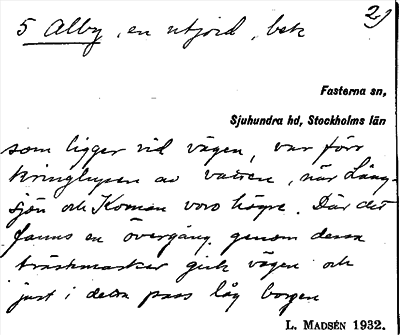 2)
5 Alby, en utjord, bek
Fasterna sn,
Sjuhundra hd, Stockholms län
som ligger vid vägen, var förr
kringflyten av vatten, när Lång-
sjön och Kornan voro högre. Där det
fanns en övergång genom dessa
träskmarker gick vägen och
just i detta pass låg borgen
L. MADSÉN 1932.